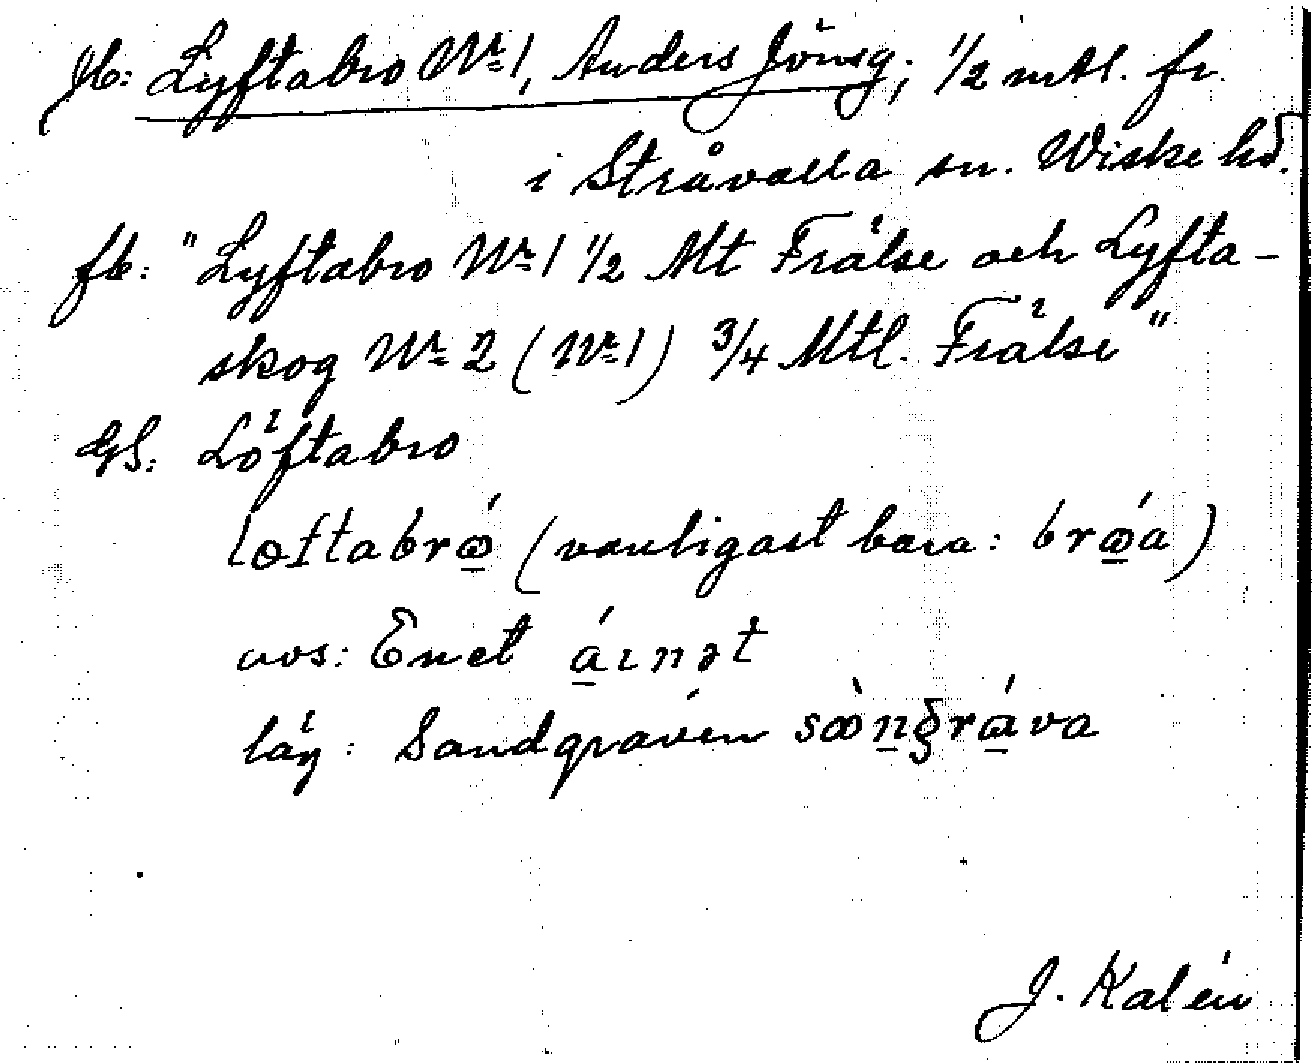 Jb: Lyftabro No 1, Anders Jönsg; 1/2 mtl. fr.
i Stråvalla sn. Wiske hd.
fb: "Lyftabro No 1 1/2 Mt Frälse och Lyfta-
skog No 2 (No 1) 3/4 Mtl. Frälse"
GS: Löftabro
(vanligast bara:
uos: Enet
läg: Sandgraven
J. Kalén